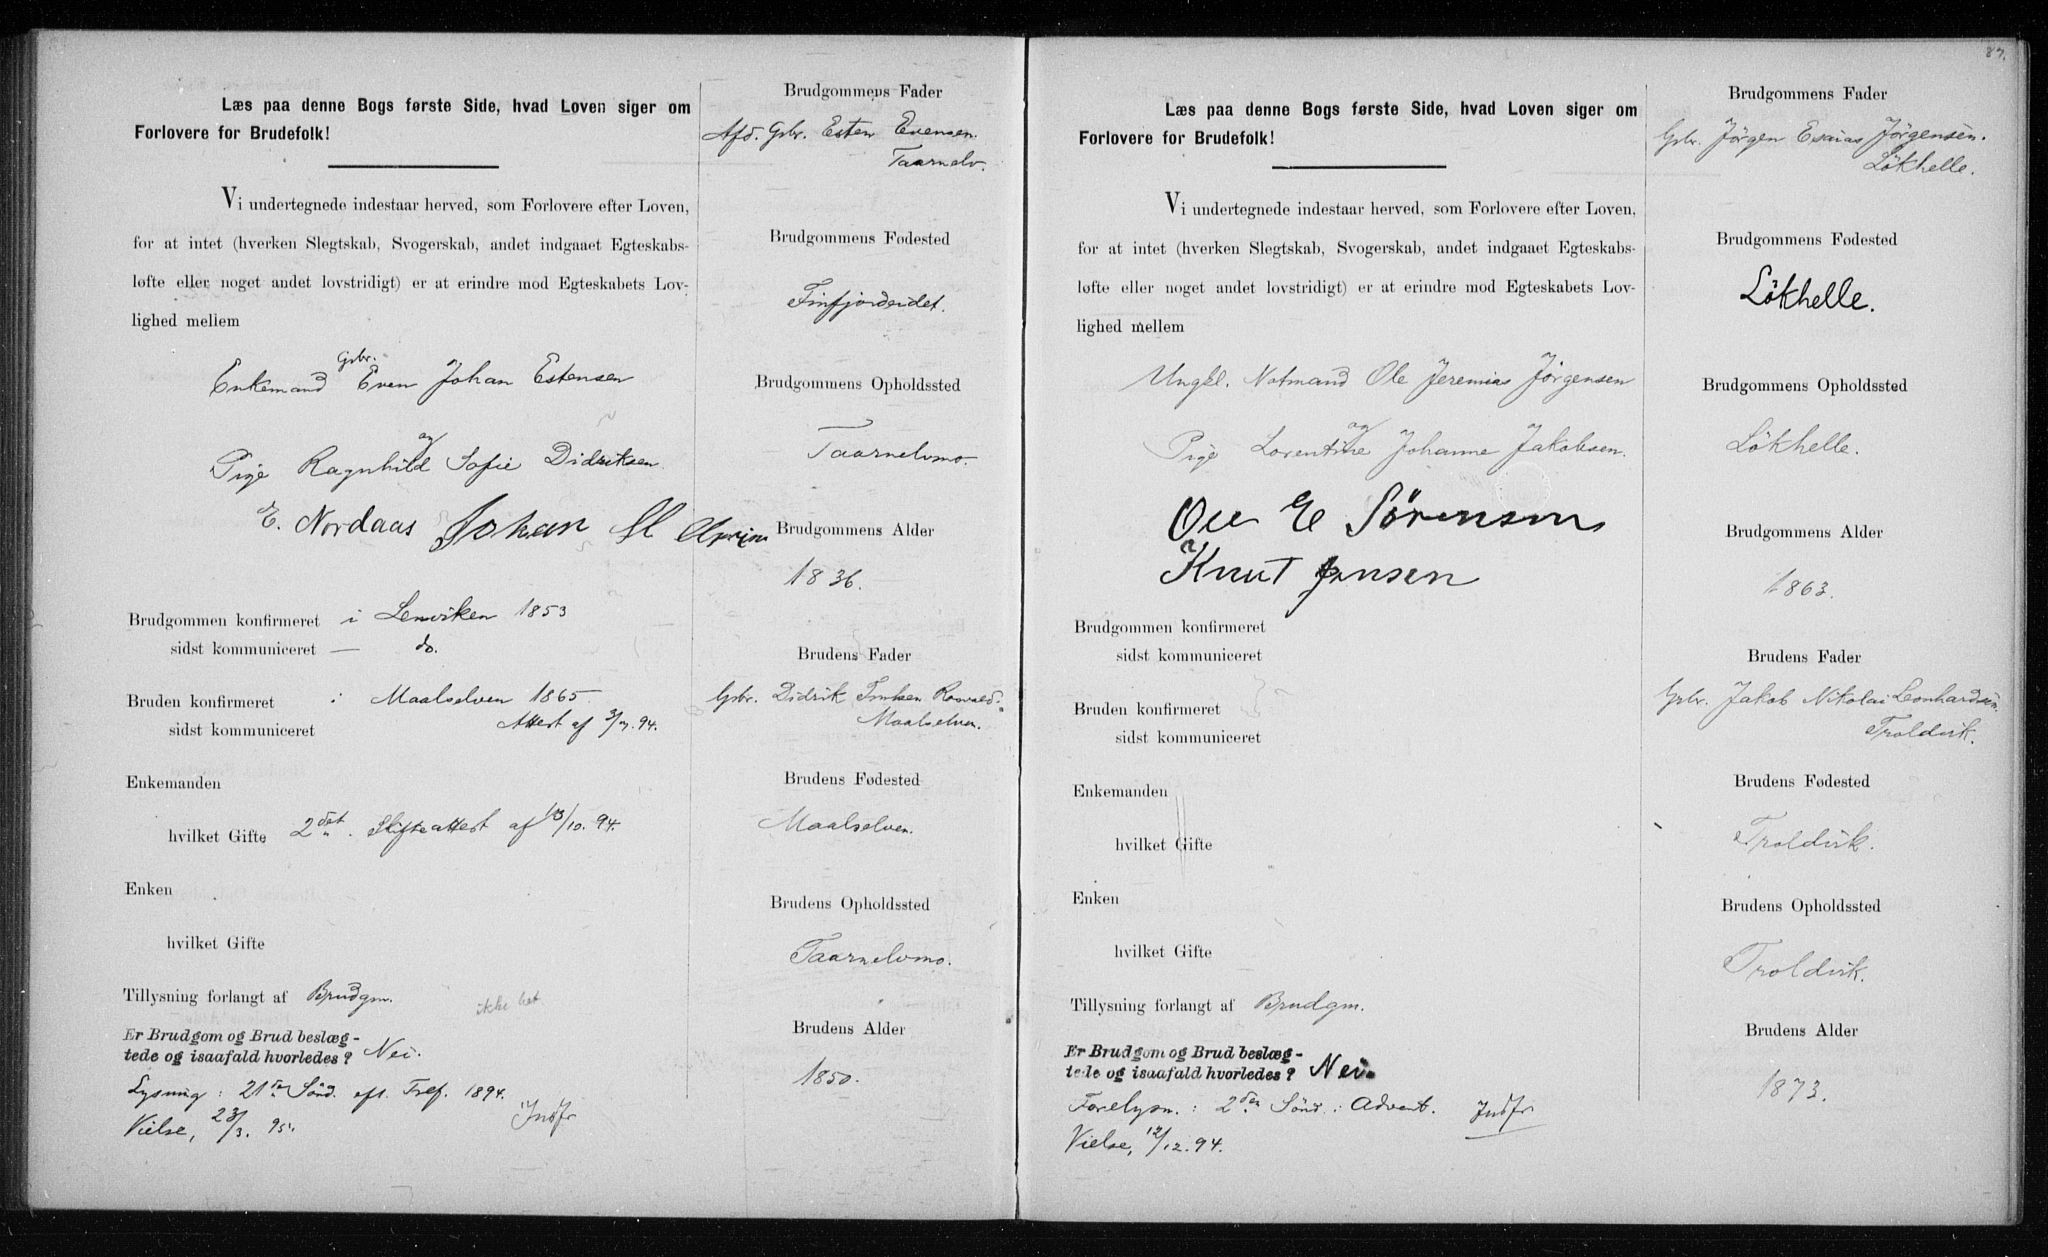 Læs paa denne Bogs første Side, hvad Loven siger om
Forlovere for Brudefolk!
Vi undertegnede indestaar herved, som Forlovere efter Loven,
for at intet (hverken Slegtskab, Svogerskab, andet indgaaet Egteskabs-
løfte eller noget andet lovstridigt) er at erindre mod Egteskabets Lov-
lighed mellem
Gbr.
Enkemand Even Johan Estensen
og
Pige Ragnhild Sofie Didriksen
E. Nordaas Johan H
Brudgommen konfirmeret i Lenviken 1853
sidst kommuniceret — do.
Bruden konfirmeret i Maalselven 1865
Attest af 3/7.94.
sidst kommuniceret
Enkemanden
hvilket Gifte 2det. Skifteattest af 13/10.94.
Enken
hvilket Gifte
Tillysning forlangt af Brudgm.
ikke bet
Er Brudgom og Brud beslæg-
tede og isaafald hvorledes? Nei.
Lysning: 21de Sönd. eft. Tref. 1894.
Vielse, 23/3. 95. Indfr
Brudgommens Fader
Afd. Gbr. Esten Evensen
Taarnelv.
Brudgommens Fødested
Finfjordeidet.
Brudgommens Opholdssted
Taarnelvmo.
Brudgommens Alder
1836.
Brudens Fader
Gbr. Didrik
Maalselven.
Brudens Fødested
Maalselven.
Brudens Opholdssted
Taarnelvmo.
Brudens Alder
1850.
87.
Læs paa denne Bogs første Side, hvad Loven siger om
Forlovere for Brudefolk!
Vi undertegnede indestaar herved, som Forlovere efter Loven,
for at intet (hverken Slegtskab, Svogerskab, andet indgaaet Egteskabs-
løfte eller noget andet lovstridigt) er at erindre mod Egteskabets Lov-
lighed mellem
Ungkl. Notmand Ole Jeremias Jørgensen
og
Pige Lorentine Johanne Jakobsen.
Ole E Sörensen
Knut Jensen
Brudgommen konfirmeret
sidst kommuniceret
Bruden konfirmeret
sidst kommuniceret
Enkemanden
hvilket Gifte
Enken
hvilket Gifte
Tillysning forlangt af Brudgm.
Er Brudgom og Brud beslæg-
tede og isaafald hvorledes? Nei.
Forelysn.: 2den Sönd: Advent. Indfr
Vielse, 12/12.94.
Brudgommens Fader
Gbr. Jörgen Esaias Jørgensen.
Lökhelle.
Brudgommens Fødested
Lökhelle.
Brudgommens Opholdssted
Lökhelle.
Brudgommens Alder
1863.
Brudens Fader
Gbr. Jakob Nikolai Leonhardsen
Troldvik.
Brudens Fødested
Troldvik.
Brudens Opholdssted
Troldvik.
Brudens Alder
1873.